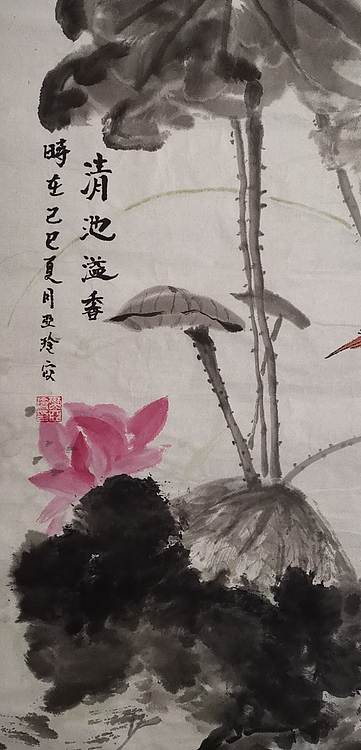 清池溢香
時在己巳夏月亞玲寫